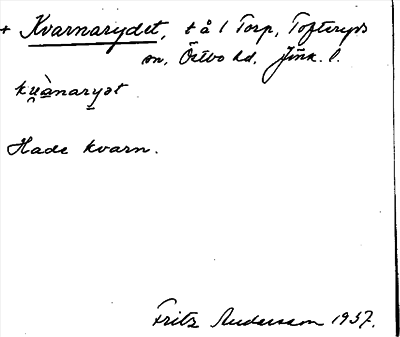 + Kvarnarydet, t å 1 Torp, Tofteryds
sn, Östbo hd, Jönk. l.
ku̯ànaryət
Hade kvarn.
Fritz Andersson 1937.